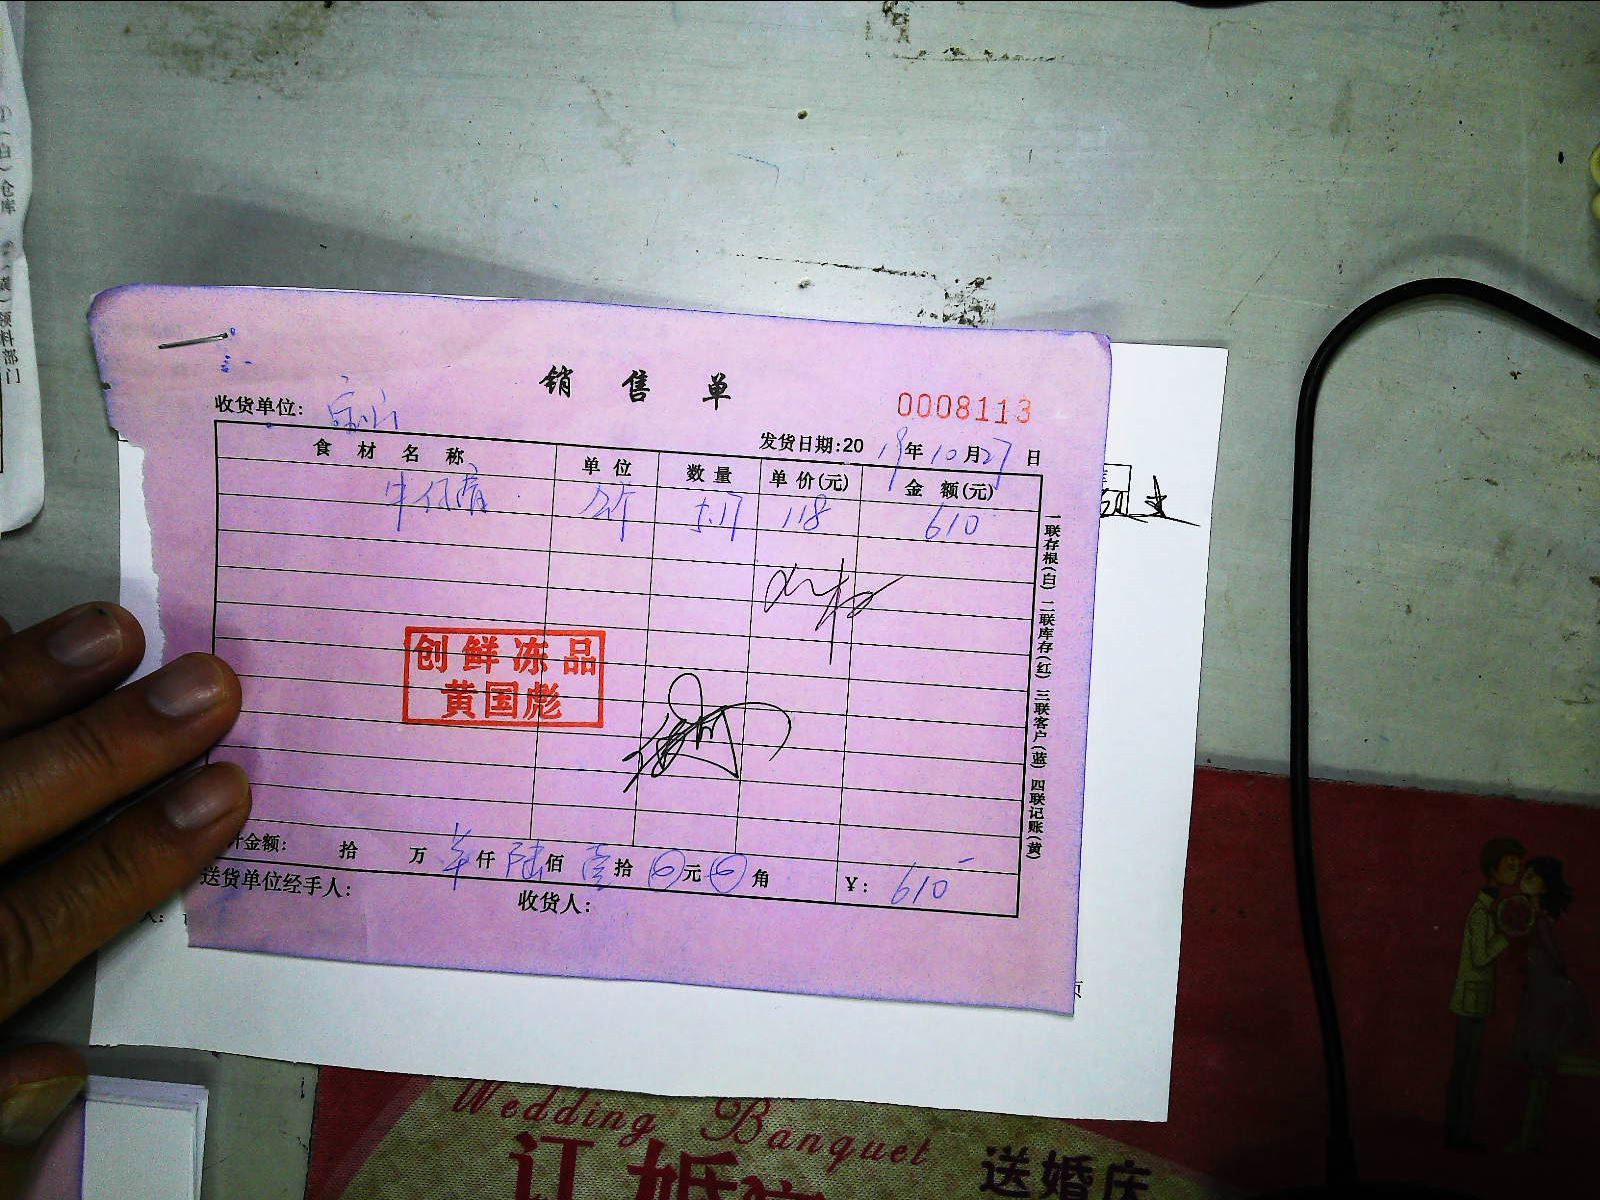 销 售 单
0008113
收货单位:
发货日期:20 19年10月27日
食 材 名 称 单 位 数 量 单 价(元) 金 额(元)
牛仔骨 公斤 5.17 118 610
创鲜冻品
黄国彪
计金额: 拾 万 仟 陆佰 壹拾 0元 0角 ¥: 610
送货单位经手人:
收货人:
一联存根(白) 二联库存(红) 三联客户(蓝) 四联记账(黄)
Wedding Banquet
订婚宴
送婚庆